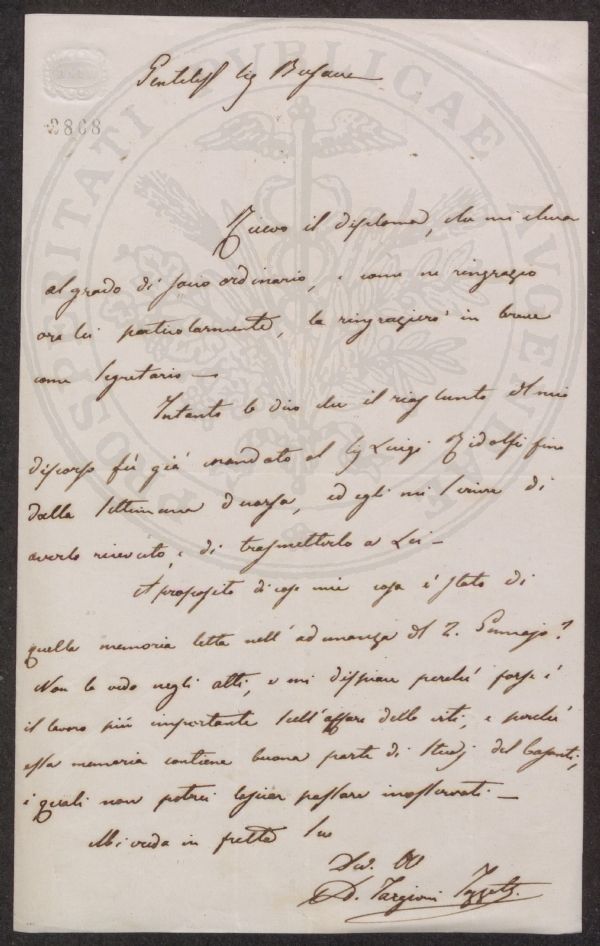 Gentiliss Sig
2868
Ricevo il diploma, che mi eleva
al grado di socio ordinario, e come ne ringrazio
ora lei particolarmente, la ringrazierò in breve
come Segretario —
Intanto le dico che il riassunto del mio
discorso fu già mandato al Sig Luigi Ridolfi fino
dalla settimana scorsa, ed egli mi scrive di
averlo ricevuto, e di trasmetterlo a Lei —
A proposito di cose mie cosa è stato di
quella memoria letta nell'adunanza del 2. Gennajo?
Non la vedo negli atti, e mi dispiace perchè forse è
il lavoro più importante sull'affare delle viti, e perchè
essa memoria contiene buona parte di studj del
i quali non potrei lasciar passare inosservati —
Mi creda in fretta suo
Dev.
D. Targioni Tozzetti
PROSPERITATI PUBLICAE AUGENDAE